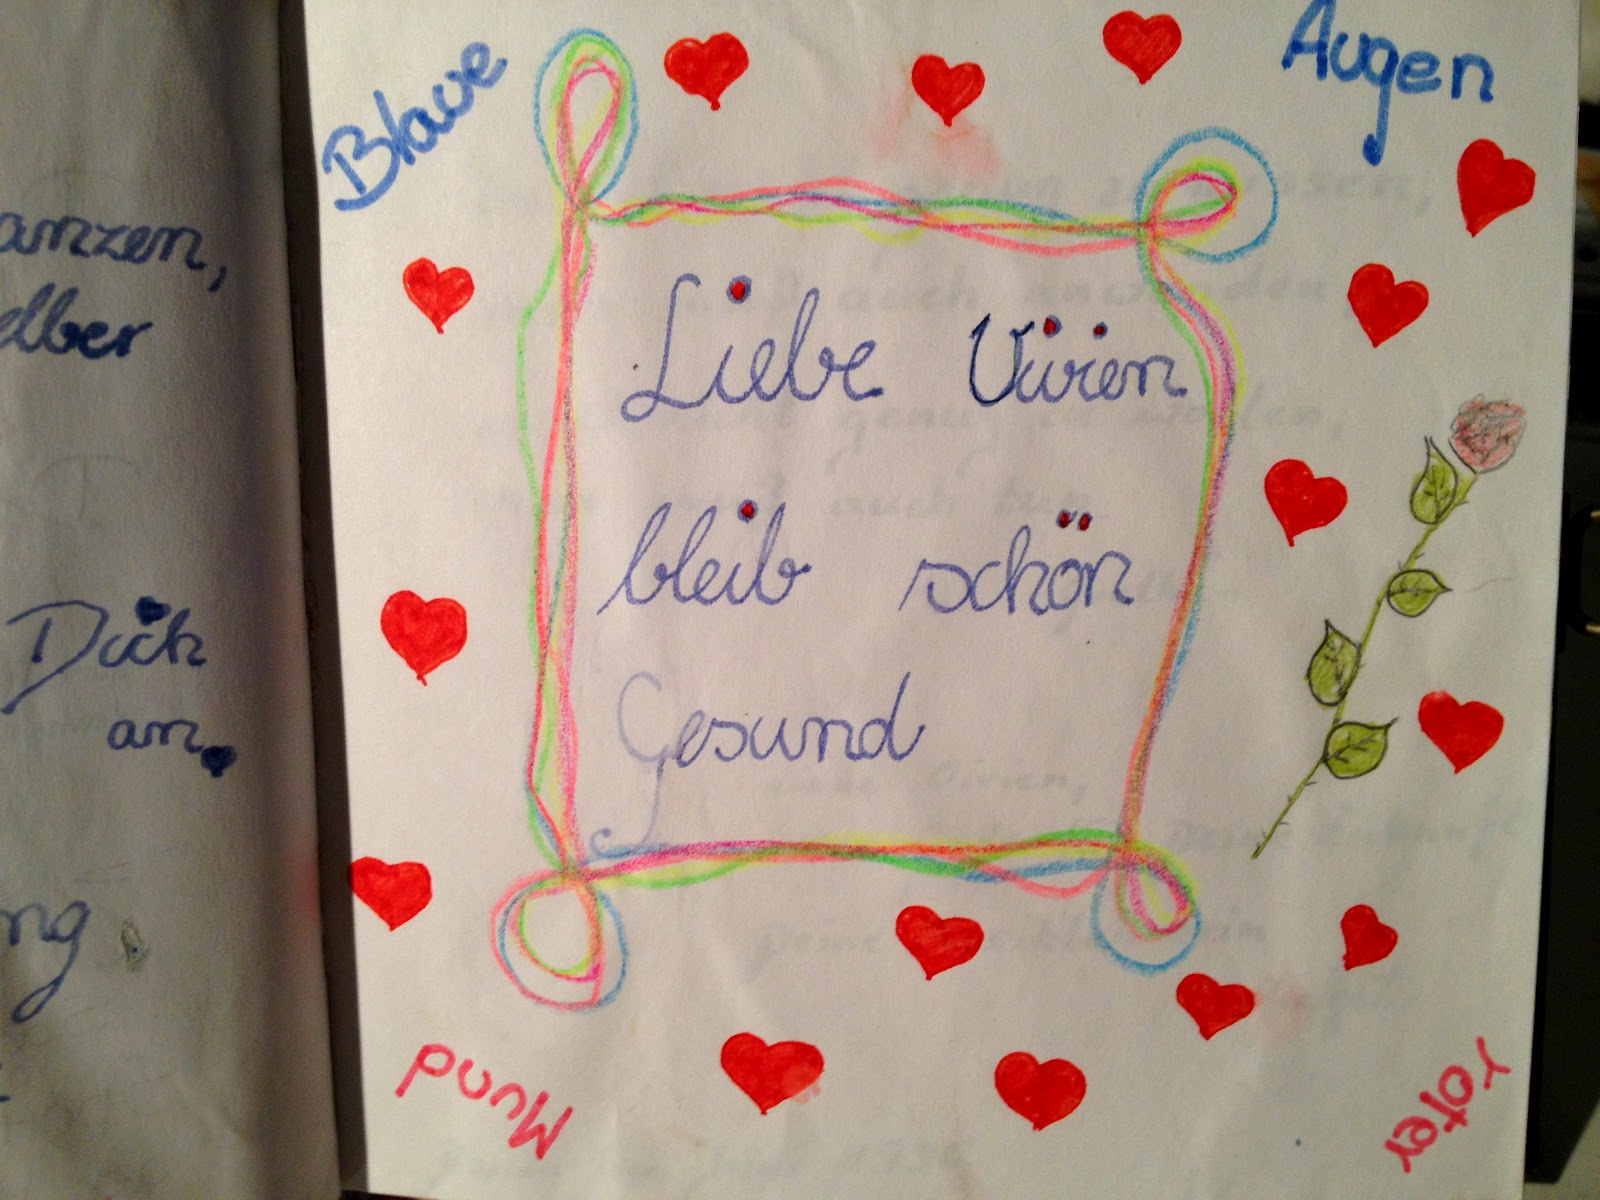 Blaue Augen
Liebe Vivien
bleib schön
Gesund
roter Mund
anzen,
elber
Dich
an.
ng